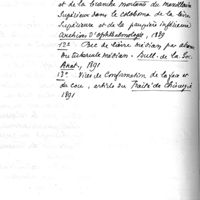 et de la branche montante du maxillaire
supérieur dans le coloboma de la lèvre
supérieure et de la paupière inférieure
Archives d'Ophthalmologie, 1889
12° Bec de lièvre médian par absence
du tubercule médian. Bull. de la Soc.
Anat., 1891
13° Vices de conformation de la face et
du cou, article du Traité de Chirurgie
1891